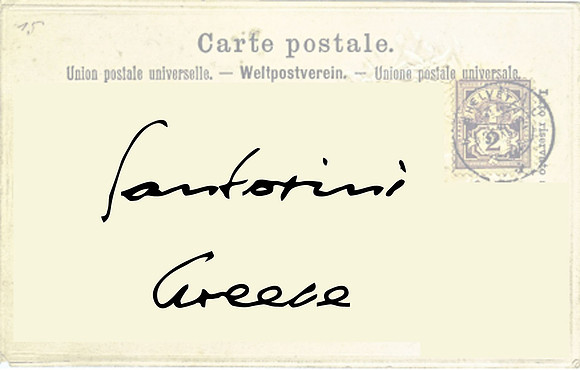 15
Carte postale.
Union postale universelle. — Weltpostverein. — Unione postale universale.
HELVETIA
2
Lato riservato
Santorini
Greece